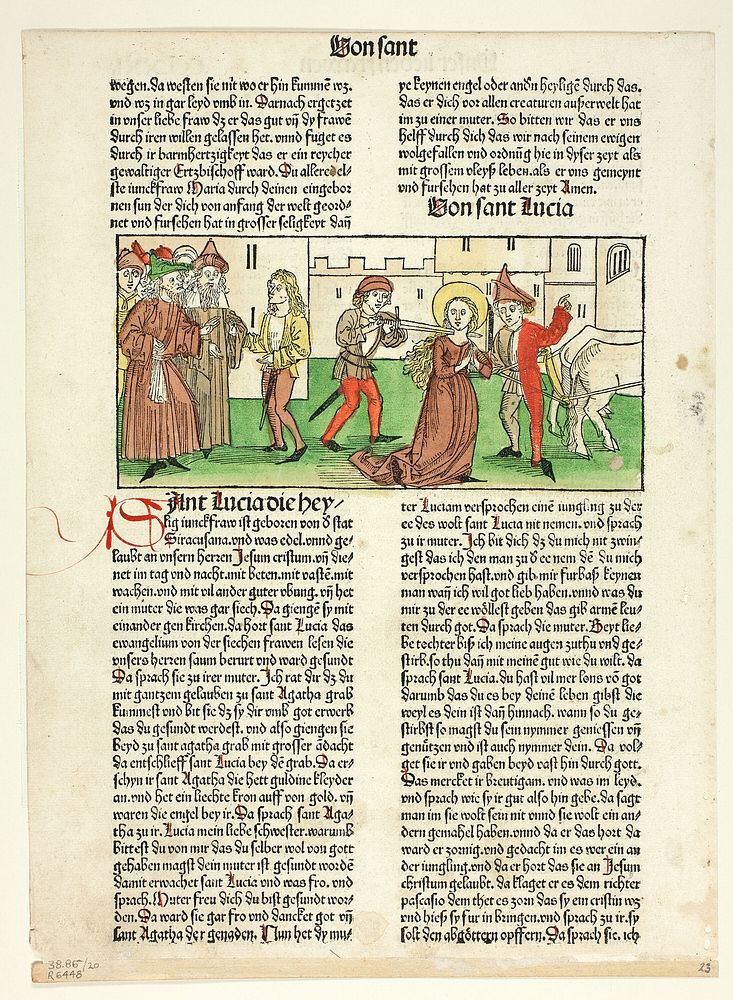 Von sant
wegen. da westen sie nit wo er hin kummen wz.
vnd wz in gar leyd vmb in. Darnach ergetzet
in vnser liebe fraw dz er das gut vñ dy frawen
durch iren willen gelassen het. vnnd fuget es
durch ir barmhertzigkeyt das er ein reycher
gewaltiger Ertzbischoff ward. Du alleredel-
ste iunckfraw Maria durch deinen eingebor
nen sun der dich von anfang der welt geord-
net vnd fursehen hat in grosser seligkeyt dañ
ye keynen engel oder andñ heyligē durch das.
das er dich vor allen creaturen außerwelt hat
im zu einer muter. So bitten wir das er vns
helff durch dich das wir nach seinem ewigen
wolgefallen vnd ordnūg hie in dyser zeyt als
mit grossem vleyß leben. als er vns gemeynt
vnd fursehen hat zu aller zeyt Amen.
Von sant Lucia
SAnt Lucia die hey/
lig iunckfraw ist geboren von d̄ stat
Siracusana. vnd was edel. vnnd ge-
laubt an vnsern herren Jesum cristum. vñ die-
net im tag vnd nacht. mit beten. mit vastē. mit
wachen. vnd mit vil ander guter vbung. vñ het
ein muter die was gar siech. Da giengē sy mit
einander gen kirchen. da hort sant Lucia das
ewangelium von der siechen frawen lesen die
vnsers herren saum berurt vnd ward gesundt
Da sprach sie zu irer muter. Ich rat dir dz du
mit gantzem gelauben zu sant Agatha grab
kummest vnd bit sie dz sy dir vmb got erwerb
das du gesundt werdest. vnd also giengen sie
beyd zu sant agatha grab mit grosser ādacht
da entschlieff sant Lucia bey dē grab. Da er-
schyn ir sant Agatha die hett guldine kleyder
an. vnd het ein liechte kron auff von gold. vñ
waren die engel bey ir. Da sprach sant Aga-
tha zu ir. Lucia mein liebe schwester. warumb
bittest du von mir das du selber wol von gott
gehaben magst dein muter ist gesundt wordē
damit erwachet sant Lucia vnd was fro. vnd
sprach. Muter freu dich du bist gesundt wor-
den. Da ward sie gar fro vnd dancket got vñ
sant Agatha der genaden. Nun het dy mu-
ter Luciam versprochen einē iungling zu der
ee des wolt sant Lucia nit nemen. vnd sprach
zu ir muter. Ich bit dich dz du mich nit zwin-
gest das ich den man zu d̄ ee nem dē du mich
versprochen hast. vnd gib mir furbaß keynen
man wañ ich wil got lieb haben. vnnd was du
mir zu der ee wöllest geben das gib armē leu-
ten durch got. Da sprach die muter. Beyt lie-
be tochter biß ich meine augen zuthu vnd ge-
stirb. so thu dañ mit meinē gut wie du wilt. da
sprach sant Lucia. du hast vil mer lons vō got
darumb das du es bey deinē leben gibst die
weyl es dein ist dañ hinnach. wann so du ge-
stirbst so magst du sein nymmer geniessen vñ
genützen vnd ist auch nymmer dein. Da vol-
get sie ir vnd gaben beyd vast hin durch gott.
Das mercket ir breutigam. vnd was im leyd.
vnd sprach wie sy ir gut also hin gebe. da sagt
man im sie wolt sein nit vnnd sie wolt ein an-
dern gemahel haben. vnnd da er das hort da
ward er zornig. vnd gedacht im es wer ein an
der iungling. vnd da er hort das sie an Jesum
christum gelaubt. da klaget er es dem richter
pascasio dem thet es zorn das sy ein cristin wz
vnd hieß sy fur in bringen. vnd sprach zu ir. sy
solt den abgöttern opffern. Da sprach sie. ich
38.86/20
R6448
23